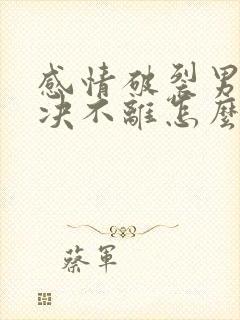 感情破裂男
决不離怎麽
蔡軍